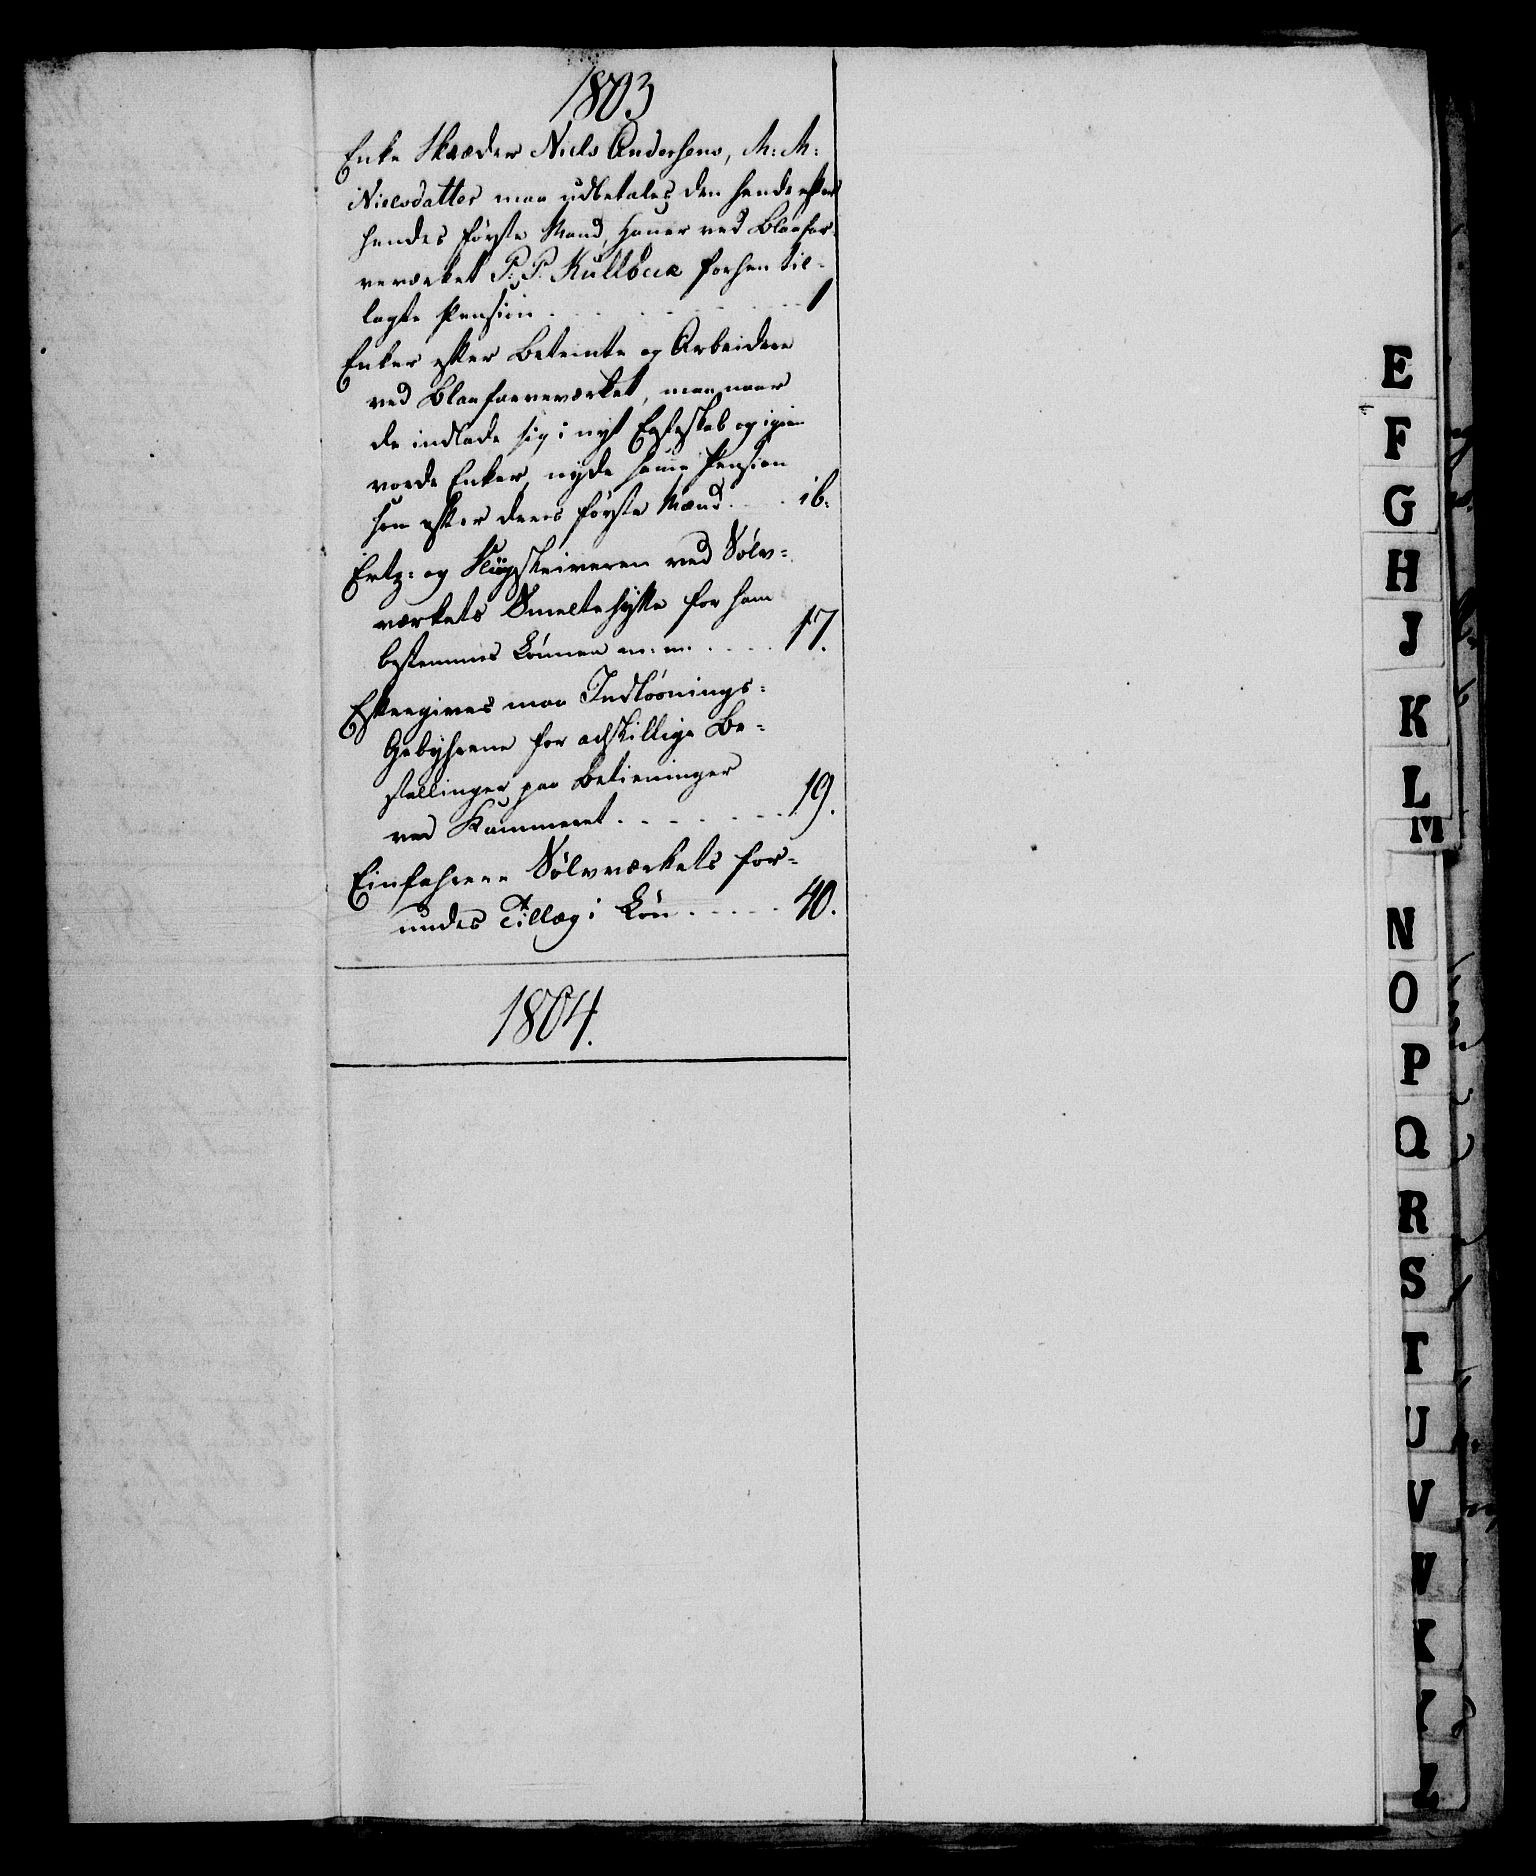 1803
Enke Skræder Niels Andersens, M: M:
Nielsdatter maa udbetales den hende efter
hendes første Mand, Hauer ved Blaafar-
veværket P: P. Kullbeck forhen til-
lagte Pension . . . . . . . 1
Enker efter Betiente og Arbeidere
ved Blaafarveværket, maa naar
de indlade sig i nyt Egteskab og igien
vorde Enker, nyde samme Pension
som efter deres første Mænd . . . ib.
Ertz- og Slig-skriveren ved Sølv-
værkets Smeltehytte for ham
bestemmes Lønnen m: m. . . . . 17.
Eftergives maa Indløsnings-
Gebyhrene for adskillige Be-
stallinger paa Betieninger
ved Kammeret . . . . . . . 19.
Einfahrere Sølvværkets for-
undes Tillæg i Løn . . . . . 40.
1804.
E
F
G
H
J
K
L
M
N
O
P
Q
R
S
T
U
V
W